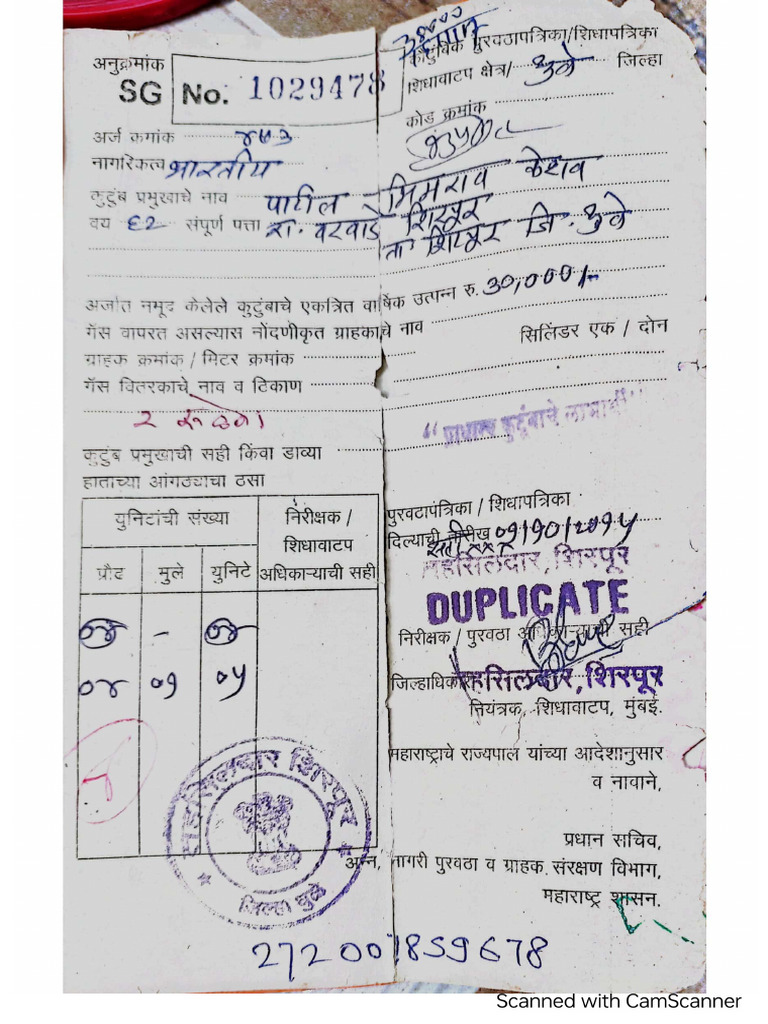 अनुक्रमांक
SG No. 1029478
कौटुंबिक पुरवठापत्रिका/शिधापत्रिका
शिधावाटप क्षेत्र/ धुळे जिल्हा
कोड क्रमांक
अर्ज क्रमांक
नागरिकत्व भारतीय
कुटुंब प्रमुखाचे नाव पाटील भिमराव केशव
वय ६२ संपूर्ण पत्ता रा. वरवाडे शिरपूर
ता शिरपूर जि. धुळे
अर्जात नमूद केलेले कुटुंबाचे एकत्रित वार्षिक उत्पन्न रु. ३०,०००/-
गॅस वापरत असल्यास नोंदणीकृत ग्राहकाचे नाव सिलिंडर एक / दोन
ग्राहक क्रमांक / मिटर क्रमांक
गॅस वितरकाचे नाव व ठिकाण
"प्राधान्य कुटूंबाचे लाभार्थी"
कुटुंब प्रमुखाची सही किंवा डाव्या
हाताच्या आंगठ्याचा ठसा
युनिटांची संख्या
निरीक्षक /
शिधावाटप
अधिकाऱ्याची सही
प्रौढ मुले युनिटे
०४ - ०४
०४ ०१ ०५
पुरवठापत्रिका / शिधापत्रिका
दिल्याची तारीख ०१/१०/२०१५
तहसिलदार, शिरपूर
DUPLICATE
निरीक्षक / पुरवठा अधिकाऱ्याची सही
जिल्हाधिकारी
तहसिलदार, शिरपूर
नियंत्रक, शिधावाटप, मुंबई.
महाराष्ट्राचे राज्यपाल यांच्या आदेशानुसार
व नावाने,
तहसिलदार शिरपूर
जिल्हा धुळे
प्रधान सचिव,
अन्न, नागरी पुरवठा व ग्राहक संरक्षण विभाग,
महाराष्ट्र शासन.
272001859678
Scanned with CamScanner